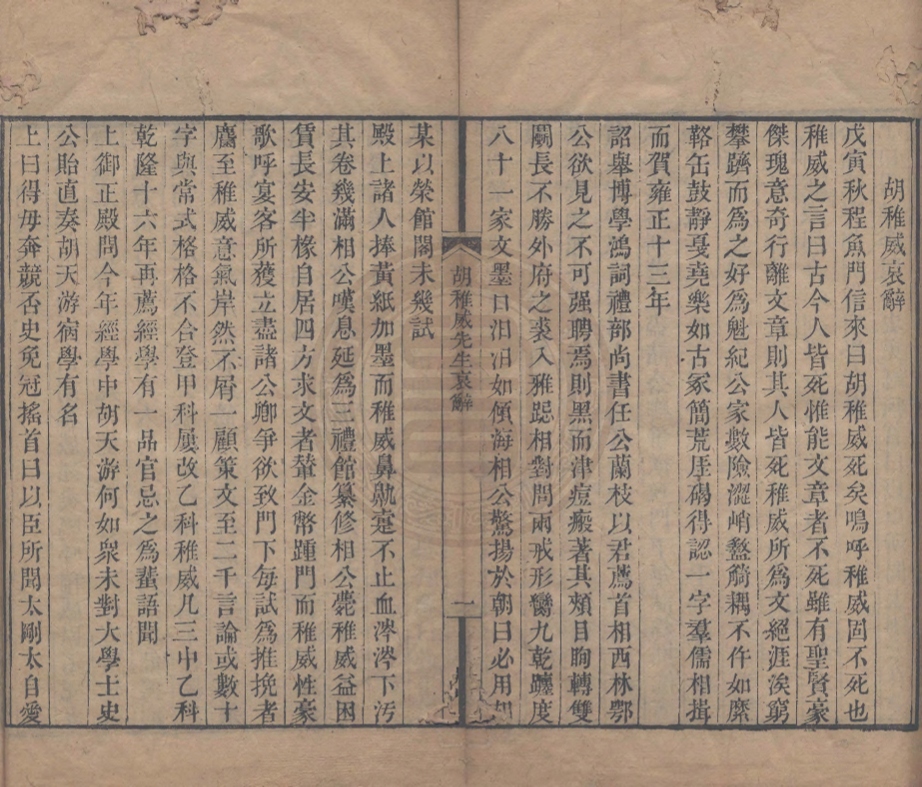 胡稚威哀辭
戊寅秋程魚門信來曰胡稚威死矣嗚呼稚威固不死也
稚威之言曰古今人皆死惟能文章者不死雖有聖賢豪
傑瑰意奇行離文章則其人皆死稚威所為文絕涯涘窮
攀躋而為之好為魁紀公家數險澀峭盭觭耦不仵如縻
鞈缶鼓靜戛堯樂如古冢簡荒厓碣得認一字羣儒相揖
而賀雍正十三年
詔舉博學鴻詞禮部尚書任公蘭枝以君薦首相西林鄂
公欲見之不可强聘焉則黑而津痘瘢著其頰目眴轉雙
鬬長不勝外府之裘入雅跽相對問兩戒形勢九乾躔度
八十一家文墨曰汨汨如傾海相公驚揚於朝曰必用胡
胡稚威先生哀辭
一
某以榮館閣未幾試
殿上諸人捧黃紙加墨而稚威鼻鼽蔑不止血涔涔下污
其卷幾滿相公嘆息延為三禮館纂修相公薨稚威益困
賃長安半椽自居四方求文者輦金幣踵門而稚威性豪
歌呼宴客所獲立盡諸公卿爭欲致門下每試為推挽者
麕至稚威意氣岸然不屑一顧策文至二千言論或數十
字與常式格格不合登甲科屢改乙科稚威凡三中乙科
乾隆十六年再薦經學有一品官忌之為蜚語聞
上御正殿問今年經學中胡天游何如衆未對大學士史
公貽直奏胡天游宿學有名
上曰得毋奔競否史免冠搖首曰以臣所聞太剛太自愛